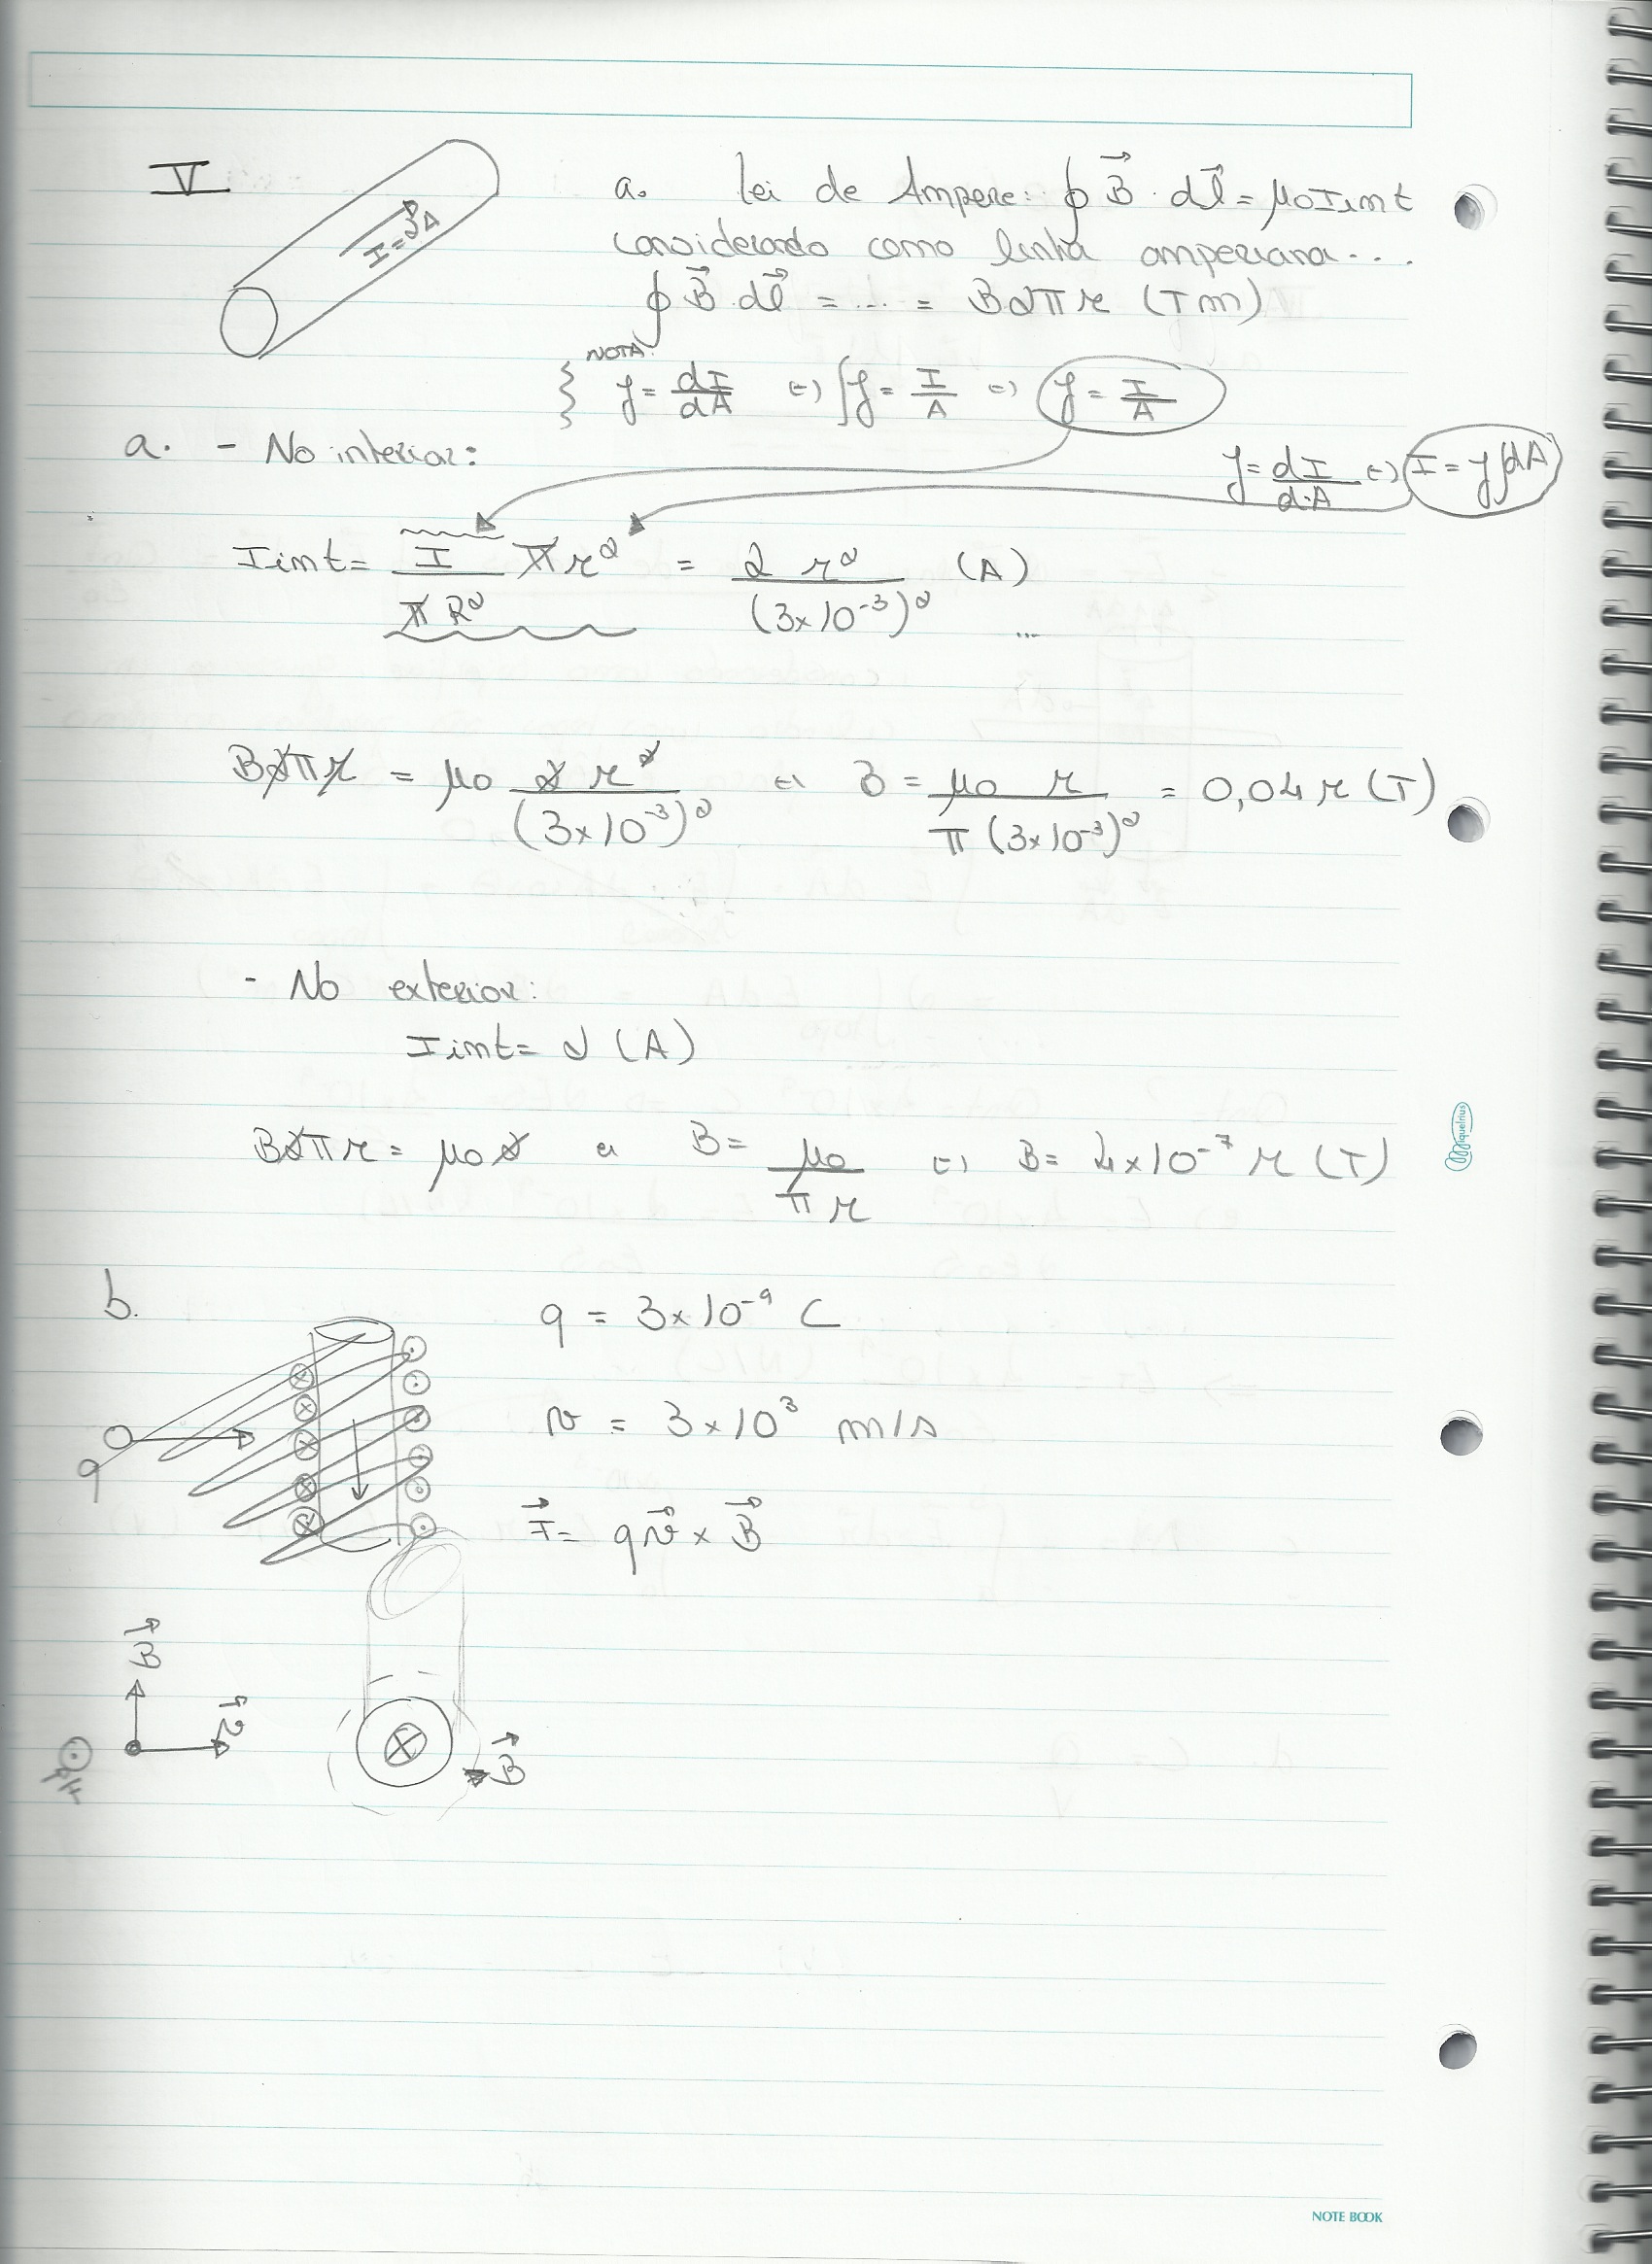 V
I=3A
a. Lei de Ampere: ∮ B⃗ · dl⃗ = μ0 Iint
considerado como linha amperiana...
∮ B⃗ · dl⃗ = ... = B2πr (Tm)
NOTA:
{ J = dI/dA (=) ∫J = I/A (=) J = I/A
a. - No interior:
J = dI/dA (=) I = J∫dA
Iint = I/πR² πr² = 2 r²/(3×10⁻³)² (A)
...
B2πr = μ0 2 r²/(3×10⁻³)² (=) B = μ0 r/π(3×10⁻³)² = 0,04 r (T)
- No exterior:
Iint = 2 (A)
B2πr = μ0 2 (=) B = μ0/πr (=) B = 4×10⁻⁷ r (T)
b.
q = 3×10⁻⁹ C
q
v = 3×10³ m/s
F⃗ = qv⃗ × B⃗
B⃗
v⃗
F⃗
B⃗
Miquelrius
NOTE BOOK